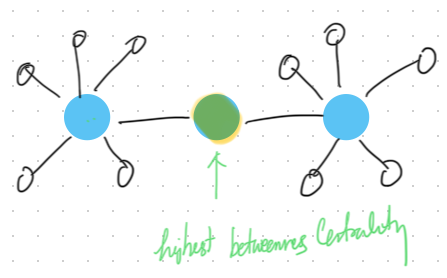 highest betweennes Centrality